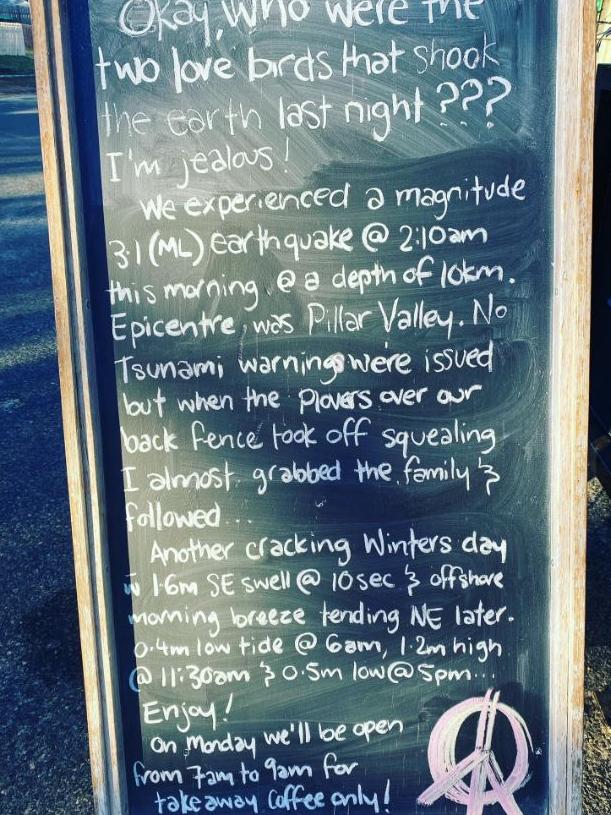 Okay, who were the
two love birds that shook
the earth last night ???
I'm jealous!
We experienced a magnitude
3.1 (ML) earthquake @ 2:10am
this morning @ a depth of 10km.
Epicentre was Pillar Valley. No
Tsunami warnings were issued
but when the Plovers over our
back fence took off squealing
I almost grabbed the family &
followed...
Another cracking Winters day
w 1.6m SE swell @ 10sec & offshore
morning breeze tending NE later.
0.4m low tide @ 6am, 1.2m high
@ 11:30am & 0.5m low @ 5pm...
Enjoy!
On Monday we'll be open
from 7am to 9am for
takeaway coffee only!